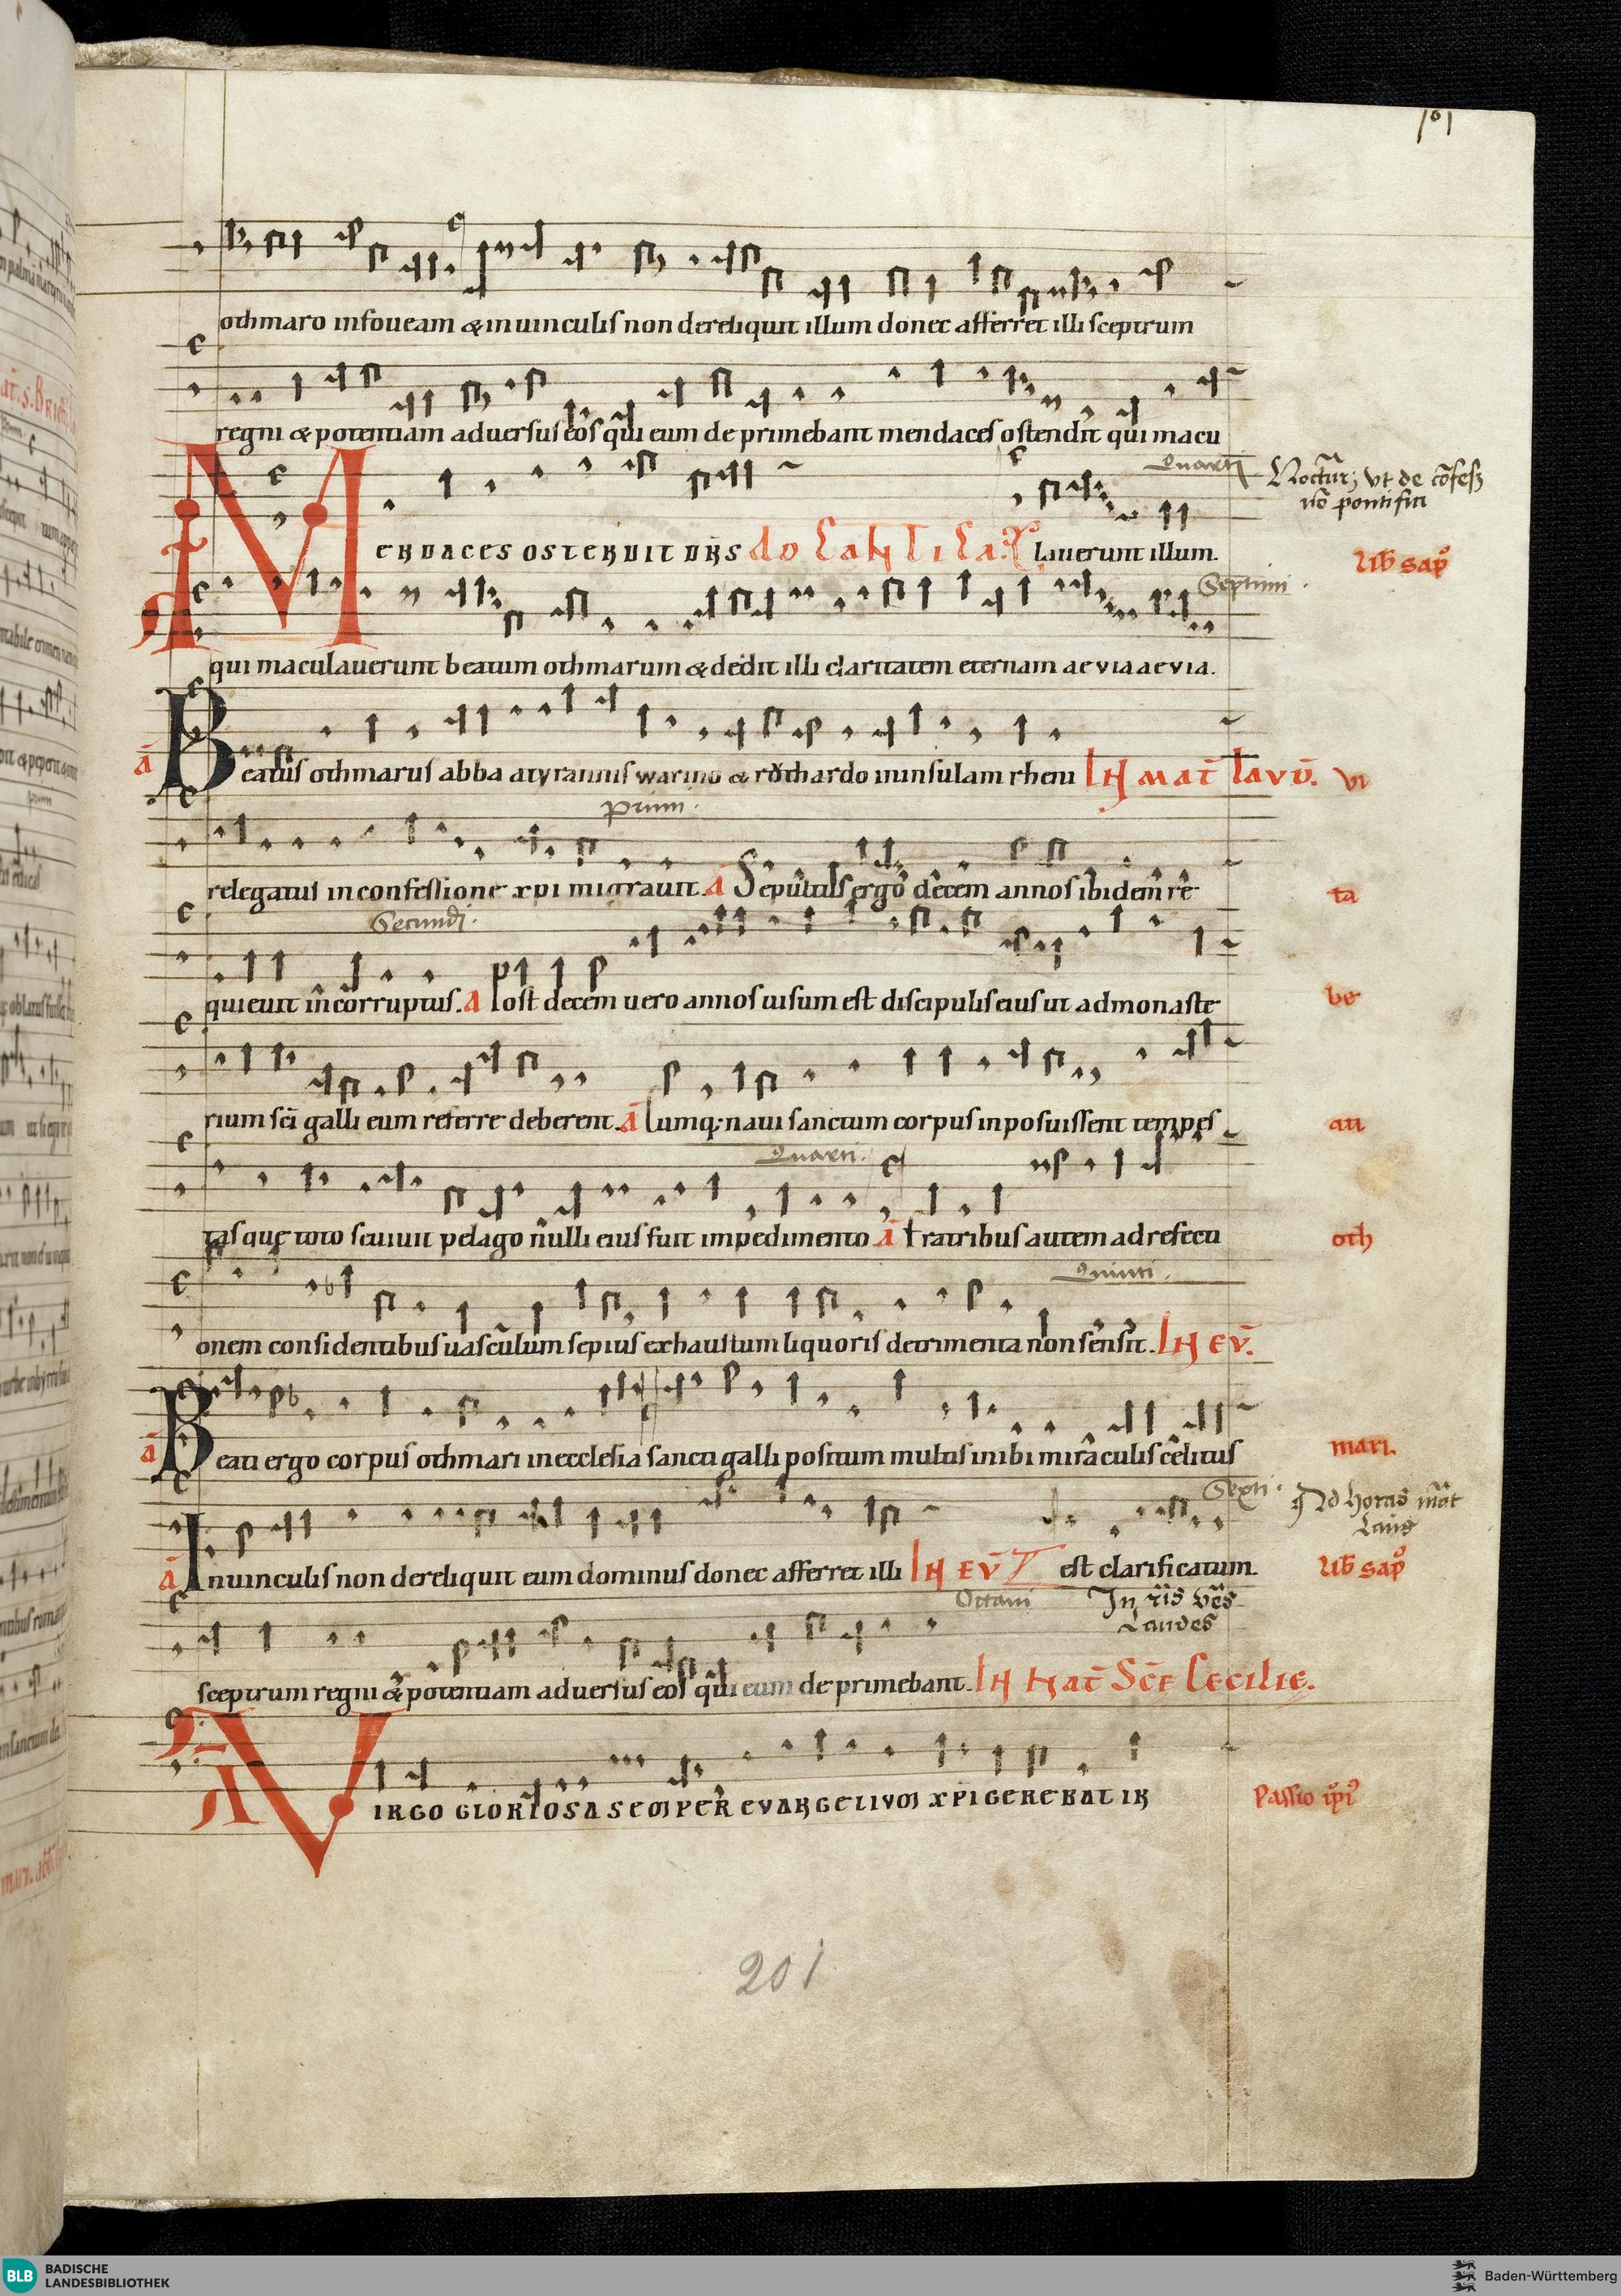 othmaro infoueam & in uinculis non dereliquit illum donec afferret illi sceptrum
regni & potentiam aduersus eos qui eum de primebant mendaces ostendit qui macu
Quarti
Nocturͣ vt de cōfeſſ
nō pontifici
MENDACES OSTENDIT DNS do Cantica. lauerunt illum.
Ub̄ sap̄
Septimi
qui maculauerunt beatum othmarum & dedit illi claritatem eternam aevia aevia.
A Beatus othmarus abba a tyrannis warino & rothardo in insulam rheni IN MAT̄ LAVD̄. VI
primi
relegatus in confessione xpi migrauit. A Sepultus ergo decem annos ibidem re
ta
Secundi
quieuit incorruptus. A Post decem uero annos uisum est discipulis eius ut ad monaste
be
rium sci galli eum referre deberent. A Cumq; naui sanctum corpus inposuissent tempes
an
Quarti
tas quę toto seuiuit pelago nulli eius fuit impedimento A Fratribus autem ad refecti
oth
Quinti
onem considentibus uasculum sepius exhaustum liquoris detrimenta non sensit. IN EV̄.
A Beati ergo corpus othmari in ecclesia sancti galli positum multis inibi miraculis celitus
mari.
Sexti
Ad horas māt
Laūs
A In uinculis non dereliquit eum dominus donec afferret illi IN EV̄ est clarificatum
Ub̄ sap̄
Octaui
In ijis ves
Laudes
sceptrum regni & potentiam aduersus eos qui eum de primebant. IN NAT̄ SC̄E CECILIE.
VIRGO GLORIOSA SEMPER EVANGELIVM XPI GEREBAT IN
Passio ip̄i
201
BLB BADISCHE
LANDESBIBLIOTHEK
Baden-Württemberg